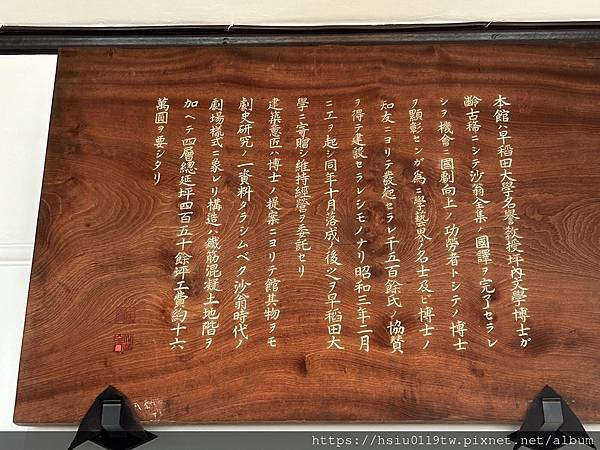 本館ハ早稻田大學名譽教授坪內文學博士ガ
齡古稀ニシテ沙翁全集ノ國譯ヲ完了セラレ
シヲ機會ニ國劇向上ノ功勞者トシテノ博士
ヲ顯彰センガ為ニ學藝界ノ名士及ビ博士ノ
知友ニヨリテ發起セラレ千五百餘氏ノ協贊
ヲ得テ建設セラレシモノナリ昭和三年二月
ニ工ヲ起シ同年十月落成ノ後之ヲ早稻田大
學ニ寄贈シ維持經營ヲ委託セリ
建築意匠ハ博士ノ提案ニヨリテ館其物ヲモ
劇史研究ノ一資料タラシムベク沙翁時代ノ
劇場樣式ニ象レリ構造ハ鐵筋混凝土地階ヲ
加ヘテ四層總延坪四百五十餘坪工費約十六
萬圓ヲ要シタリ
https://hsiu0119tw.pixnet.net/album